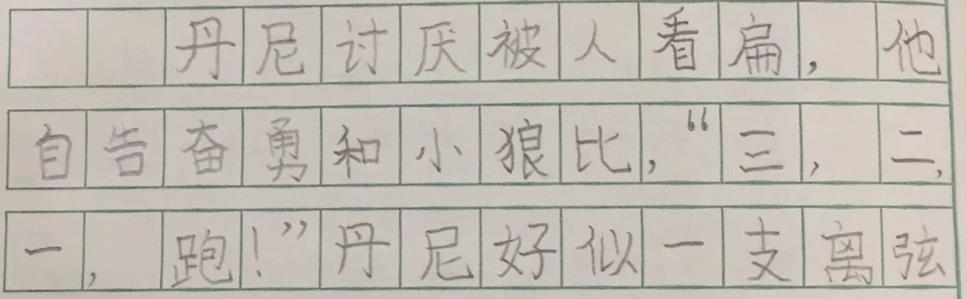 丹尼讨厌被人看扁，他
自告奋勇和小狼比，“三，二，
一，跑！”丹尼好似一支离弦